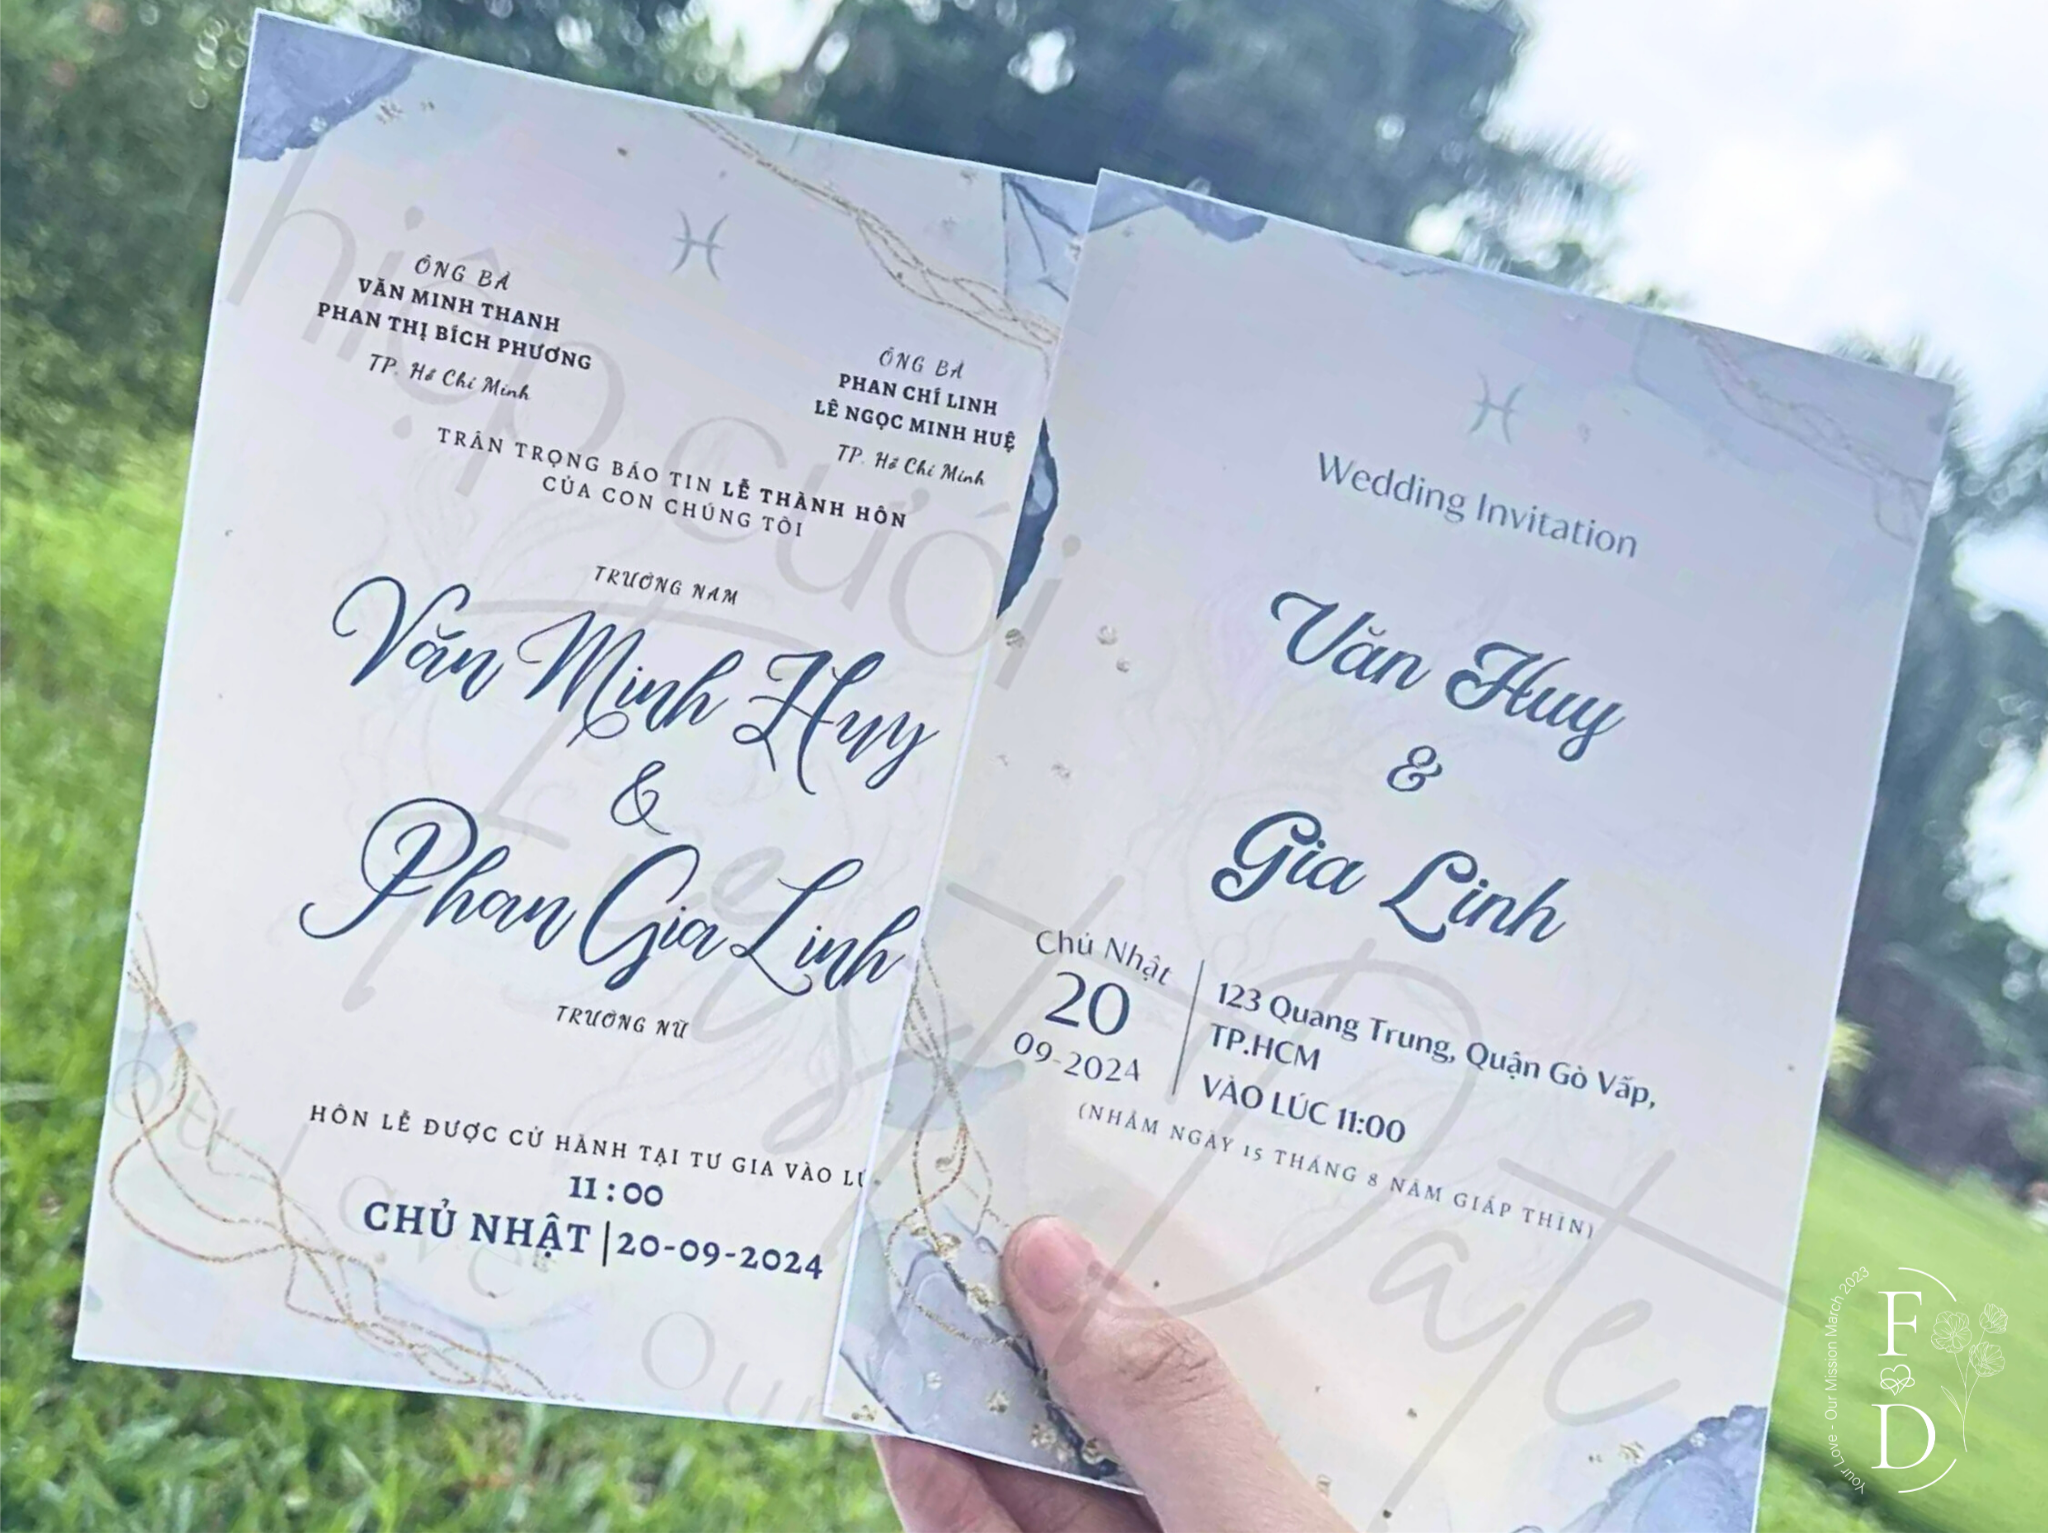 ÔNG BÀ
VĂN MINH THANH
PHAN THỊ BÍCH PHƯƠNG
TP. Hồ Chí Minh
ÔNG BÀ
PHAN CHÍ LINH
LÊ NGỌC MINH HUỆ
TP. Hồ Chí Minh
TRÂN TRỌNG BÁO TIN LỄ THÀNH HÔN
CỦA CON CHÚNG TÔI
TRƯỞNG NAM
Văn Minh Huy
&
Phan Gia Linh
TRƯỞNG NỮ
HÔN LỄ ĐƯỢC CỬ HÀNH TẠI TƯ GIA VÀO LÚ
11:00
CHỦ NHẬT | 20-09-2024
Wedding Invitation
Văn Huy
&
Gia Linh
Chủ Nhật
20
09-2024
123 Quang Trung, Quận Gò Vấp,
TP.HCM
VÀO LÚC 11:00
(NHẰM NGÀY 15 THÁNG 8 NĂM GIÁP THÌN)
hiệp cưới
Date
Our Love
Our
Your Love - Our Mission March 2023
F
D